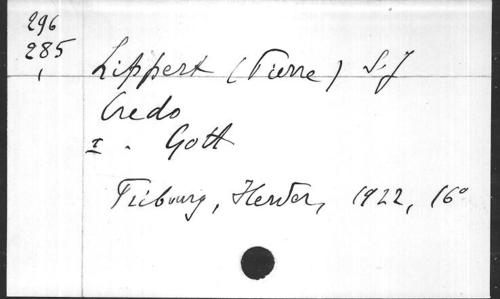 296
285
Lippert (Pierre) S.J
Credo
I. Gott
Fribourg, Herder, 1922, 16°